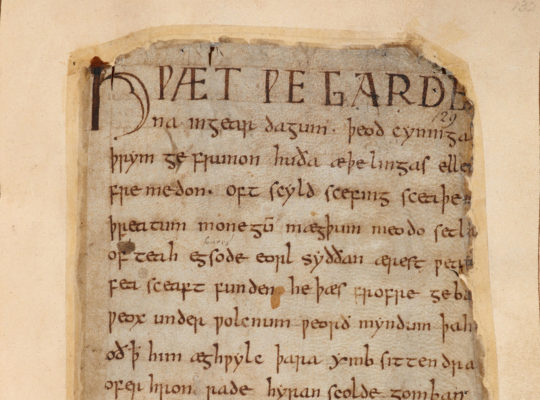 HǷÆT ǷE GARDE
na ingear dagum. þeod cyninga
þrym ge frunon huða æþelingas elle
fremedon. oft scyld scefing sceaþe
þreatum monegū mægþum meodo setla
of teah egsode eorl syððan ærest ƿear
fea sceaft funden he þæs frofre geba
ƿeox under ƿolcnum ƿeorð myndum þah
oð ꝥ him æghƿylc þara ymb sittendra
ofer hron rade hyran scolde gomban